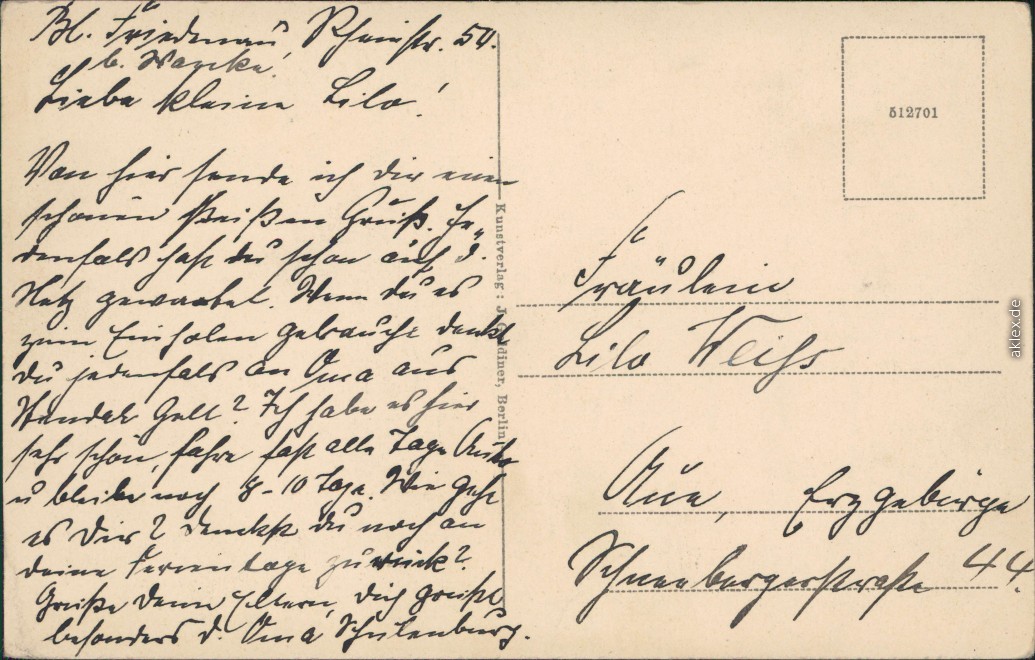 Bl. Friedenau, Rheinstr. 54.
b. Warcke!
Liebe kleine Lilo!
Von hier sende ich dir einen
schönen heißen Gruß. Je„
denfalls hast du schon auf d.
Netz gewartet. Wenn du es
zum Einholen gebrauchst denkst
du jedenfalls an Oma aus
Stendal Gell? Ich habe es hier
sehr schön, fahre fast alle Tage Auto
u bleibe noch 8-10 Tage. Wie geht
es Dir? Denkst du noch an
deine Ferientage zurück?
Grüße Deine Eltern, dich grüßt
besonders d. Oma Schulenburg.
Kunstverlag: J. Goldiner, Berlin
512701
Fräulein
Lilo Weiß
Aue, Erzgebirge
Schneebergerstraße 44.
aklex.de